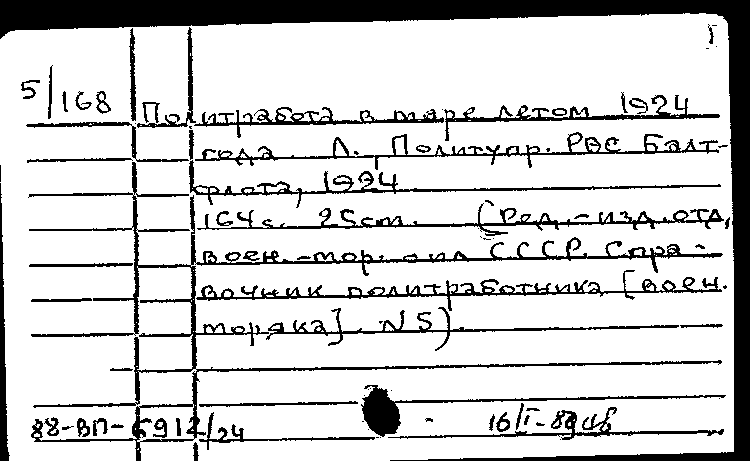 I
5/168 Политработа в море летом 1924
года Л., Политупр. РВС Балт-
флота, 1924
164с. 25см. (Ред.-изд. отд.
воен.-мор. сил СССР. Спра-
вочник политработника [воен.
моряка]. №5).
88-ВП-6912/24 16/I-89